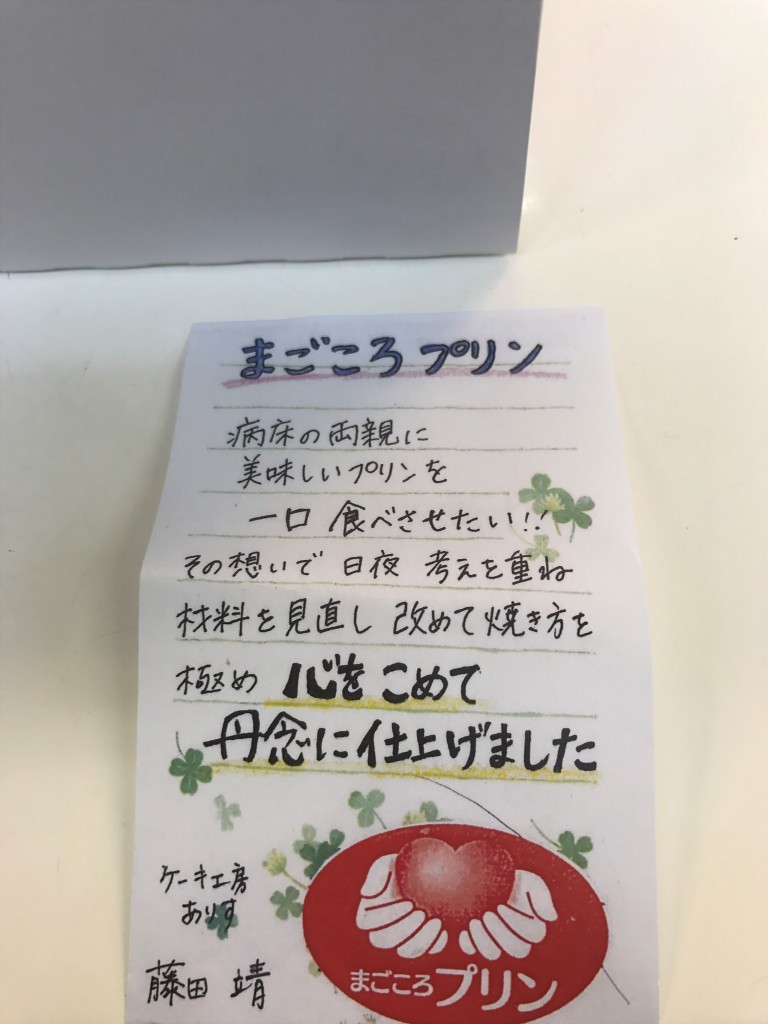 まごころプリン
病床の両親に
美味しいプリンを
一口 食べさせたい!!
その想いで 日夜 考えを重ね
材料を見直し 改めて焼き方を
極め 心をこめて
丹念に仕上げました
ケーキ工房
ありす
藤田 靖
まごころプリン